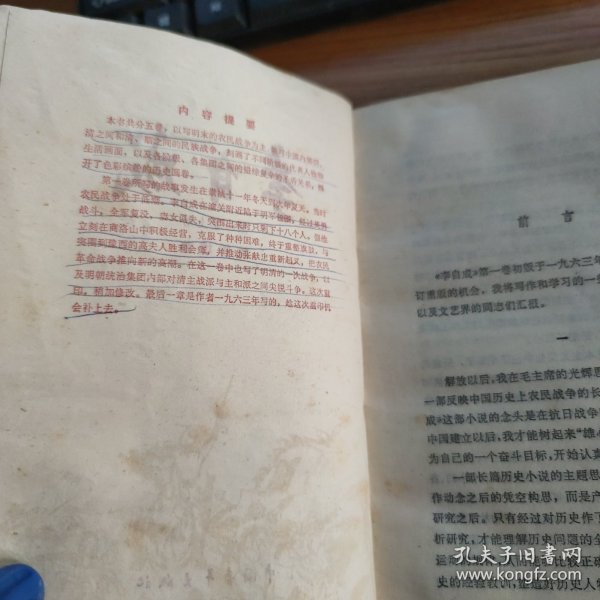 内容提要
本书共分五卷，以写明末的农民战争为主
清之间和清、
之间的民族战争，刻画了不同阶级的代表人物和
生活画面，以及各阶级、各集团之间的错综复杂的矛盾关系，展
开了色彩缤纷的历史图卷。
第一卷所写的故事发生在崇祯十一年冬天到次年夏天。当时
农民战争处于低潮，李自成在潼关附近陷于明军包围，经过英勇
战斗，全军覆没，妻女俱失，突围出来时只剩下十八个人。但他
立刻在商洛山中积极经营，克服了种种困难，终于重整旗鼓，与
突围到豫西的高夫人胜利会师，并推动张献忠重新起义，把农民
革命战争推向新的高潮。在这一卷中也写了明清的一次战争，以
及明朝统治集团内部对清主战派与主和派之间尖锐斗争。这次重
印，稍加修改。最后一章是作者一九六三年写的，趁这次重印机
会补上去。
前言
《李自成》第一卷初版于一九六三年
订重版的机会，我将写作和学习的一些
以及文艺界的同志们汇报。
一
解放以后，我在毛主席的光辉思
一部反映中国历史上农民战争的长
成》这部小说的念头是在抗日战争
中国建立以后，我才能树起来“雄心
为自己的一个奋斗目标，开始认真
一部长篇历史小说的主题思
作动念之后的凭空构思，而是产
研究之后。只有经过对历史作了
析研究，才能理解历史问题的全
运动
比较正确
史的经验教训，塑造好历史人物
孔夫子旧书网
www.kongfz.com